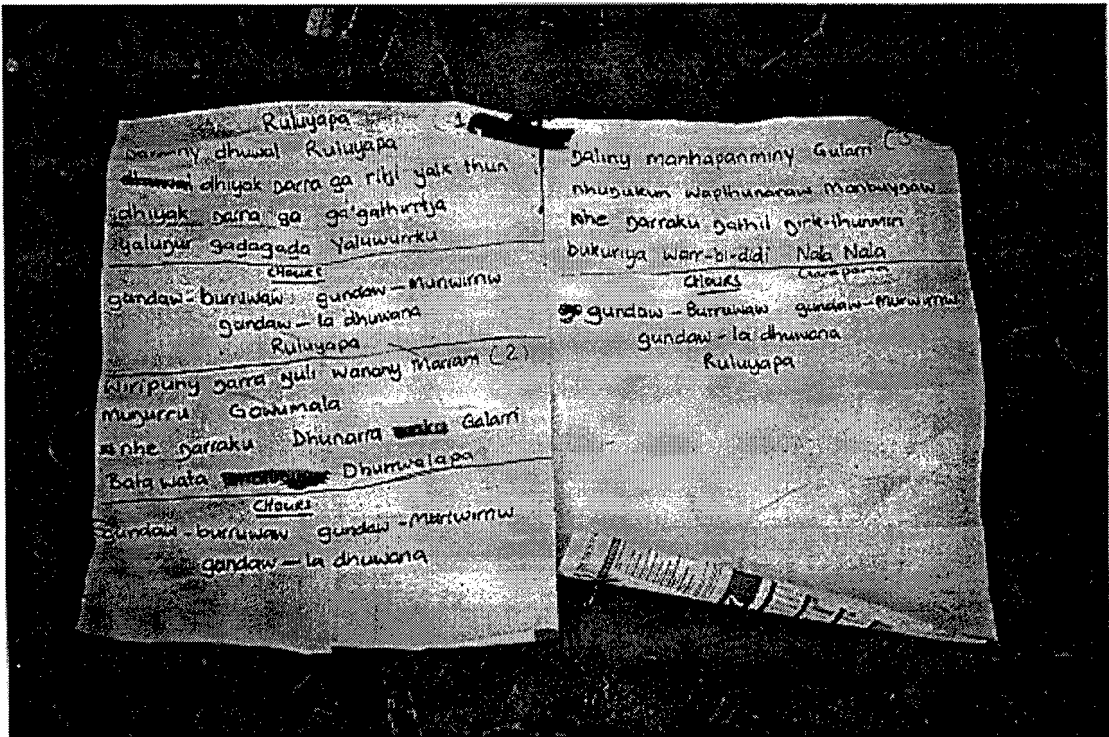 Ruluyapa 1
ŋarminy dhuwal Ruluyapa
dhiyak ŋarra ga ribi yalk thun
dhiyak ŋarra ga ga'gathirrtja
ŋyaluŋur gadagada Yaluwurrku
CHOURS
gundaw-burruwaw gundaw-Murwirrnw
gundaw-la dhuwana
Ruluyapa
Wiripuny ŋarra yuli Wanany Marram (2)
muŋurru Gowumala
nhe ŋarraku Dhunarra Galarri
Bata wata Dhumwalapa
CHOURS
gundaw-burruwaw gundaw-Murrwirrnw
gundaw-la dhuwana
ŋaliny manhapanminy Gularri (3)
nhuŋukun waplhunaraw Manbuyŋaw
nhe ŋarraku ŋathil girk-thunmin
bukuriya warr-bi-didi Nala Nala
CHOURS
gundaw-Burruwaw gundaw-Murwirrnw
gundaw-la dhuwana
Ruluyapa